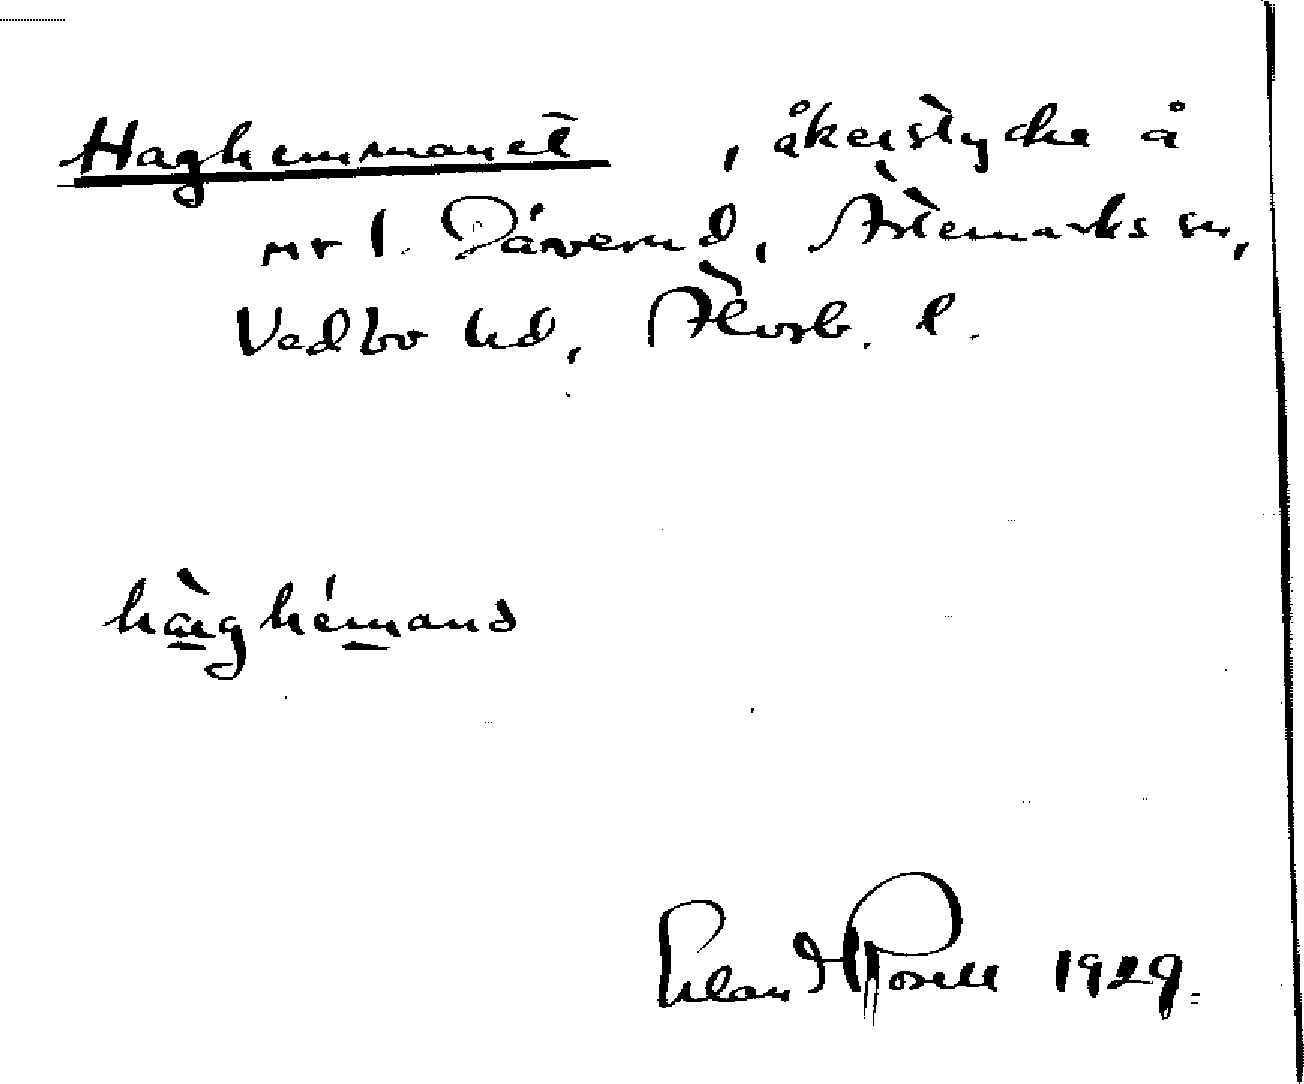 Haghemmanet, åkerstycke å
nr 1. Dåverud, Ärtemarks sn,
Vedbo hd, Älvsb. l.
hàghémand
Rosell 1929.